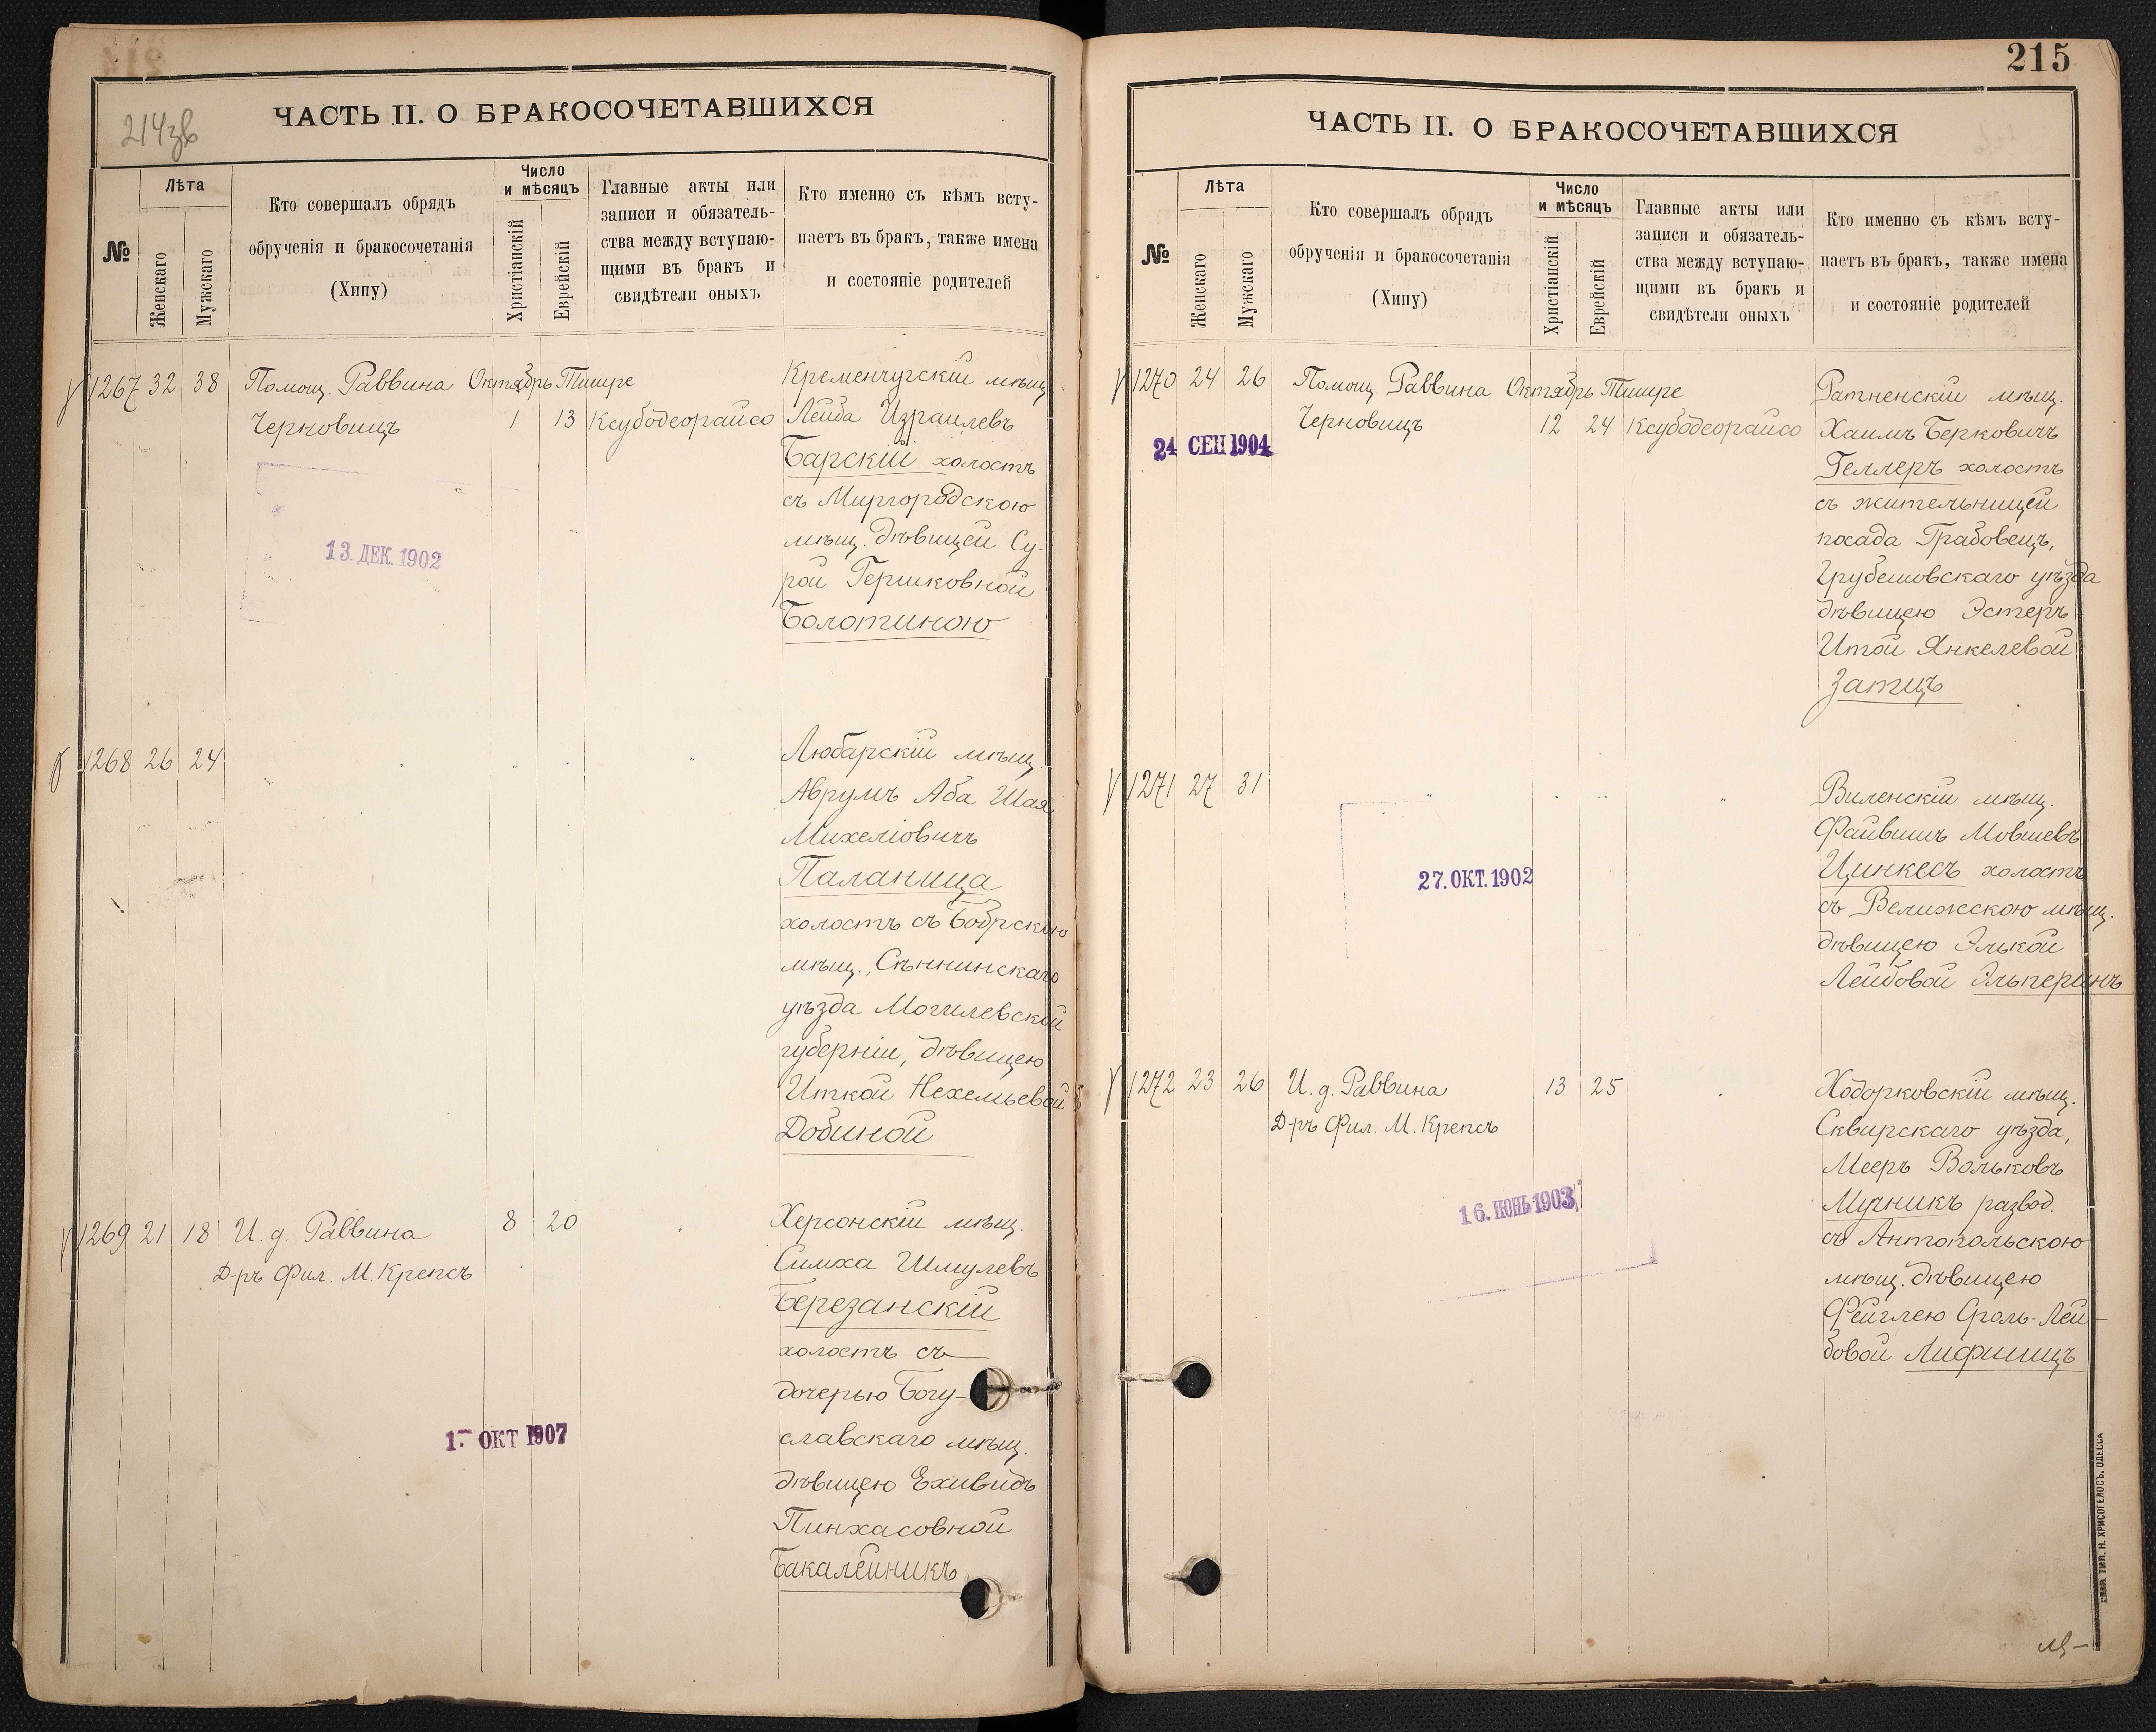 214зв
ЧАСТЬ II. О БРАКОСОЧЕТАВШИХСЯ
№
Лѣта
Женскаго
Мужскаго
Кто совершалъ обрядъ
обрученія и бракосочетанія
(Хипу)
Число
и мѣсяцъ
Христіанскій
Еврейскій
Главные акты или
записи и обязатель-
ства между вступаю-
щими въ бракъ и
свидѣтели оныхъ
Кто именно съ кѣмъ всту-
паетъ въ бракъ, также имена
и состояніе родителей
1267 32 38 Помощ. Раввина Октябрь Тишре
Черновицъ 1 13 Ксубодеорайсо
Кременчугскій мѣщ.
Лейба Израилевъ
Барскій холостъ
съ Миргородскою
мѣщ. дѣвицей Су-
рой Гершковной
Болотиною
13. ДЕК. 1902
1268 26 24
Любарскій мѣщ.
Аврумъ Аба Шая
Михеліовичъ
Паланица
холостъ съ Бобрскою
мѣщ., Сѣннинскаго
уѣзда Могилевской
губерніи, дѣвицею
Иткой Нехемьевой
Добиной
1269 21 18 И. д. Раввина 8 20
Д-ръ Фил. М. Крепсъ
Херсонскій мѣщ.
Симха Шмулевъ
Березанскій
холостъ съ
дочерью Богу-
славскаго мѣщ.
дѣвицею Ехивидъ
Пинхасовной
Бакалейникъ
ОКТ 1907
215
ЧАСТЬ II. О БРАКОСОЧЕТАВШИХСЯ
№
Лѣта
Женскаго
Мужскаго
Кто совершалъ обрядъ
обрученія и бракосочетанія
(Хипу)
Число
и мѣсяцъ
Христіанскій
Еврейскій
Главные акты или
записи и обязатель-
ства между вступаю-
щими въ бракъ и
свидѣтели оныхъ
Кто именно съ кѣмъ всту-
паетъ въ бракъ, также имена
и состояніе родителей
1270 24 26 Помощ. Раввина Октябрь Тишре
Черновицъ 12 24 Ксубодеорайсо
24 СЕН 1904
Ратненскій мѣщ.
Хаимъ Берковичъ
Геллеръ холостъ
съ жительницей
посада Грабовецъ,
Грубешовскаго уѣзда
дѣвицею Эстеръ
Итой Янкелевой
Затцъ
1271 27 31
Виленскій мѣщ.
Файвишъ Мовшевъ
Цинкесъ холостъ
съ Велижскою мѣщ.
дѣвицею Элькой
Лейбовой Эльперинъ
27. ОКТ. 1902
1272 23 26 И. д. Раввина 13 25
Д-ръ Фил. М. Крепсъ
16. ІЮНЬ 1903
Ходорковскій мѣщ.
Сквирскаго уѣзда,
Мееръ Вольковъ
Мучникъ развод.
съ Антопольскою
мѣщ. дѣвицею
Фейглею Сроль-Лей-
бовой Лифшицъ
ТИП. Н. ХРИСОГЕЛОСЪ, ОДЕССА